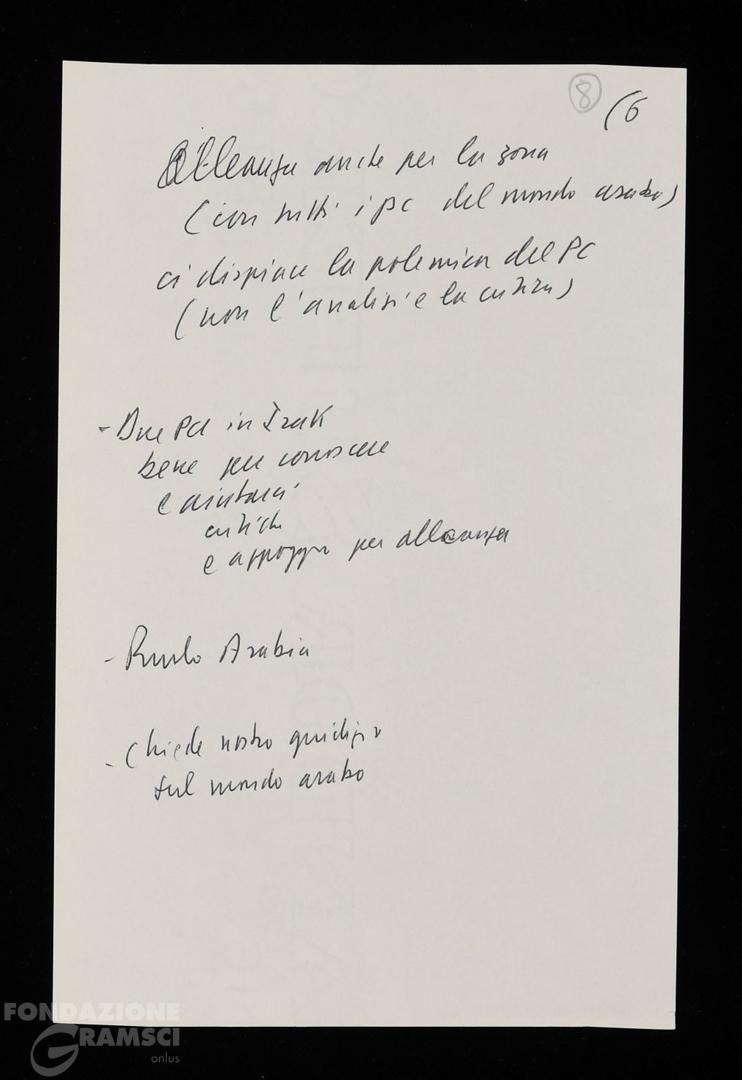 8
(6
Alleanza anche per la zona
(con tutti i pc del mondo arabo)
ci dispiace la polemica del PC
(non l'analisi e la critica)
- Due PC in Irak
bene per conoscere
e aiutarci
critiche
e appoggio per alleanza
- Ruolo Arabia
- Chiede nostro giudizio
sul mondo arabo
FONDAZIONE
GRAMSCI
onlus